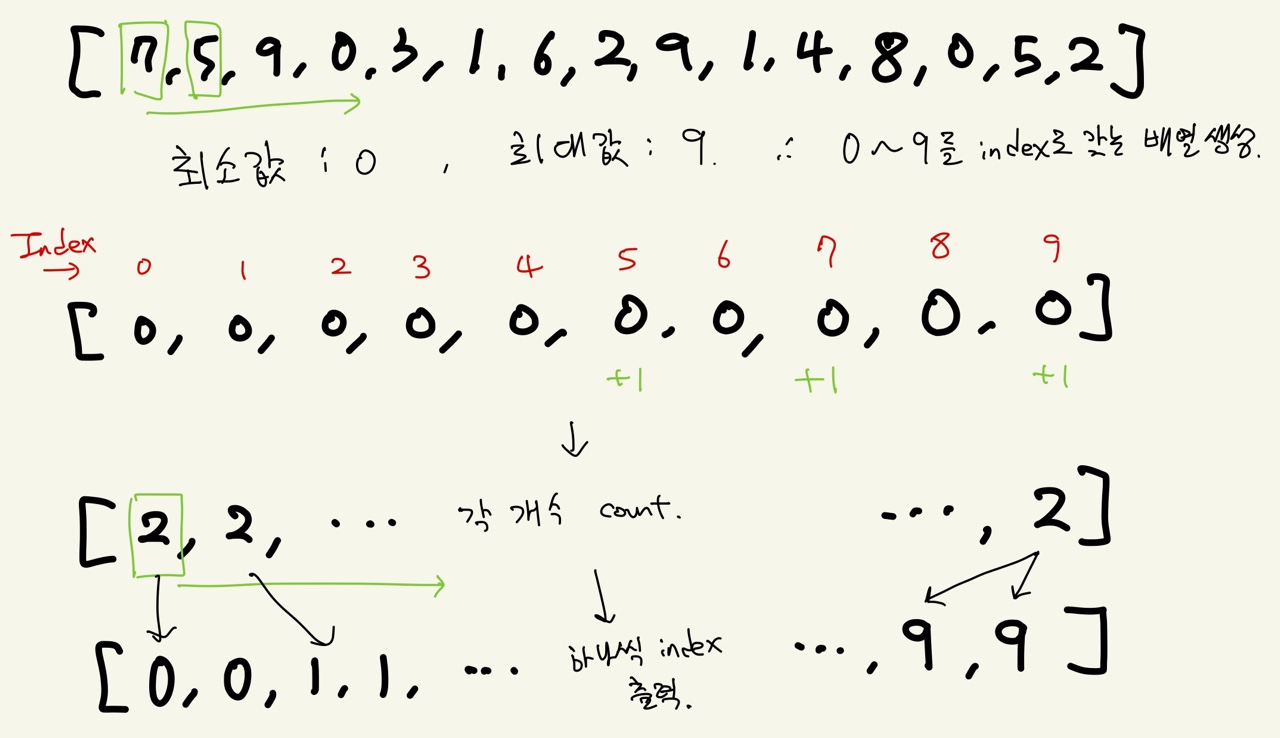 [7, 5, 9, 0, 3, 1, 6, 2, 9, 1, 4, 8, 0, 5, 2]
최소값 : 0 , 최대값 : 9. ∴ 0~9를 index로 갖는 배열 생성.
Index → 0 1 2 3 4 5 6 7 8 9
[0, 0, 0, 0, 0, 0, 0, 0, 0, 0]
+1 +1 +1
↓
[2, 2, ... 각 개수 count. ..., 2]
[0, 0, 1, 1, ... 하나씩 index ..., 9, 9]
출력.